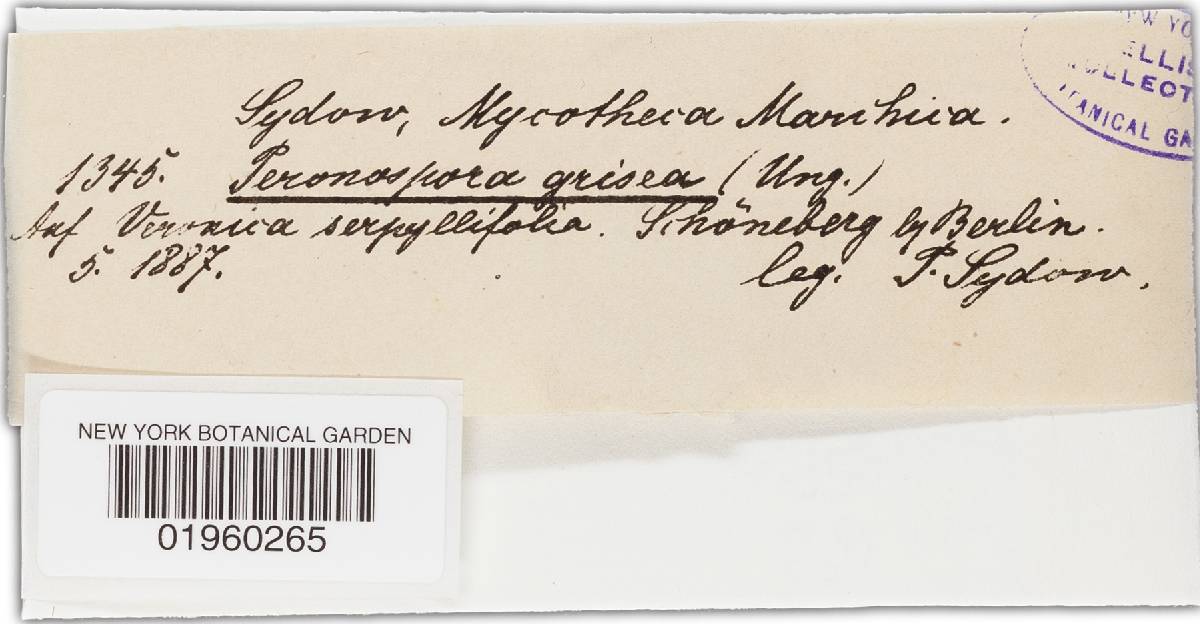 Sydow, Mycotheca Marchica.
1345. Peronospora grisea (Ung.)
Auf Veronica serpyllifolia. Schöneberg by Berlin.
5. 1887. leg. P. Sydow.
EW YO
ELLIS
OLLECT
TANICAL GA
NEW YORK BOTANICAL GARDEN
01960265